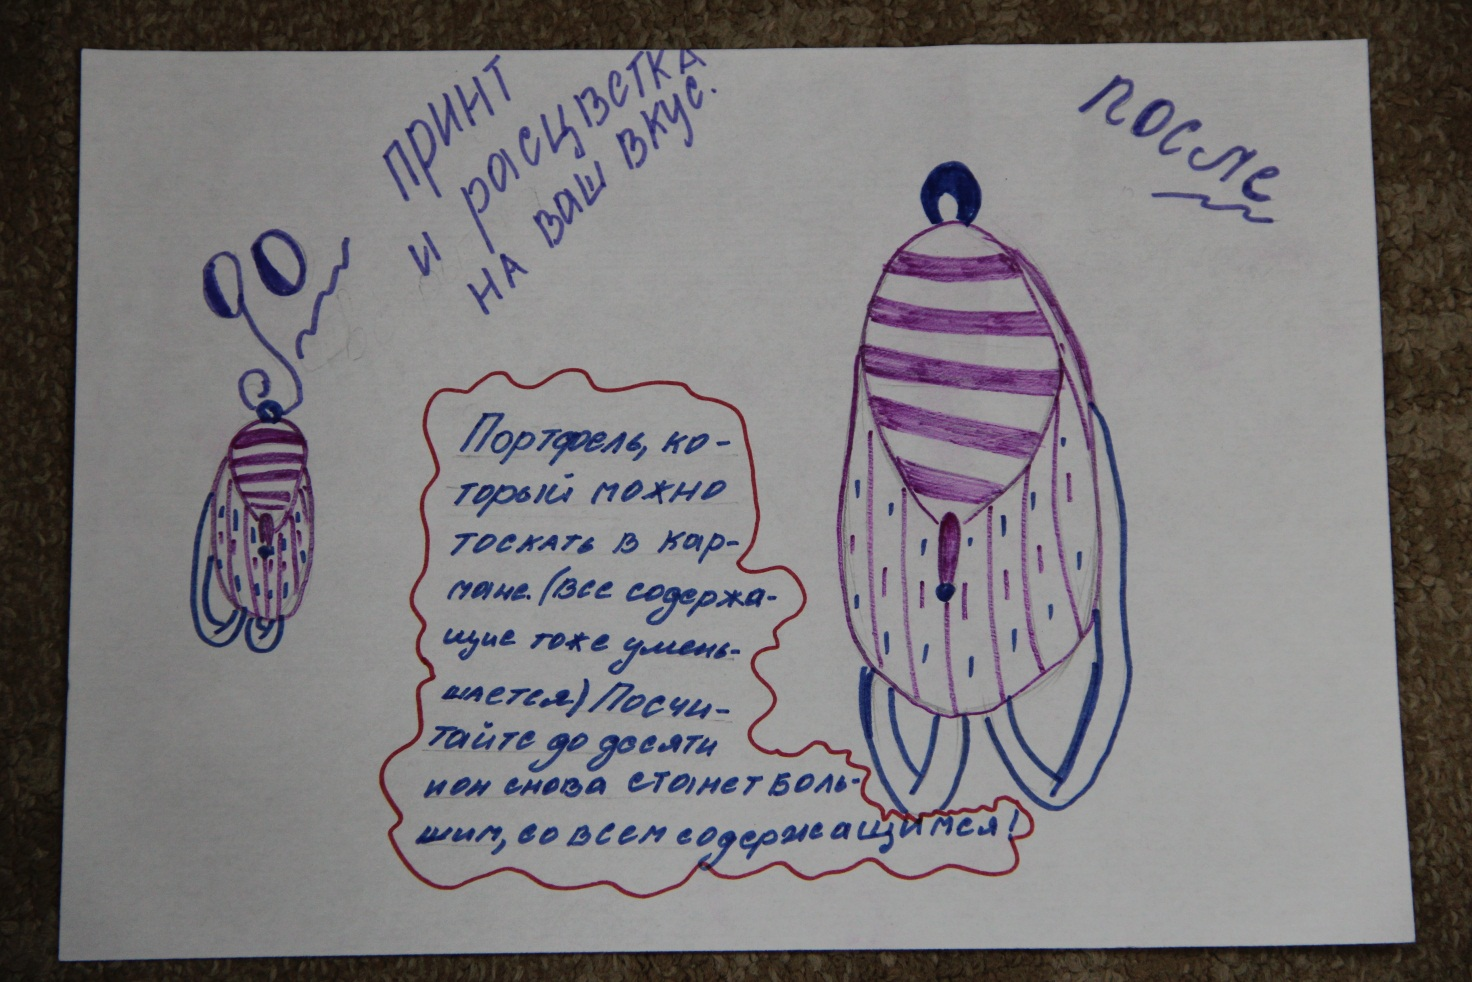 ПРИНТ
и расцветка
на ваш вкус.
после
до
Портфель, ко-
торый можно
тоскать в кар-
мане. (все содержа-
щие тоже умень-
шается) Посчи-
тайте до десяти
и он снова станет боль-
шим, со всем содержащимся!